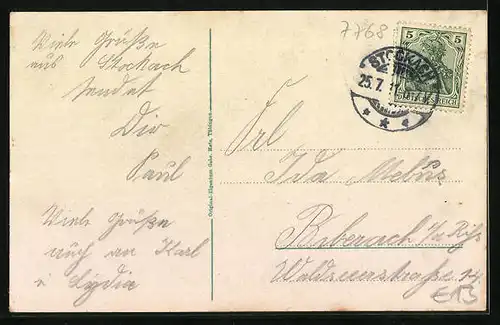 7768
Viele Grüße
aus Stockach
sendet
Dir
Paul
Viele Grüße
auch an Karl
u Lydia
Original-Eigentum Gebr. Metz, Tübingen
5 5
REICH
STOCKACH
25.7.
Frl
Ida
Biberach a/Riß
14
E13